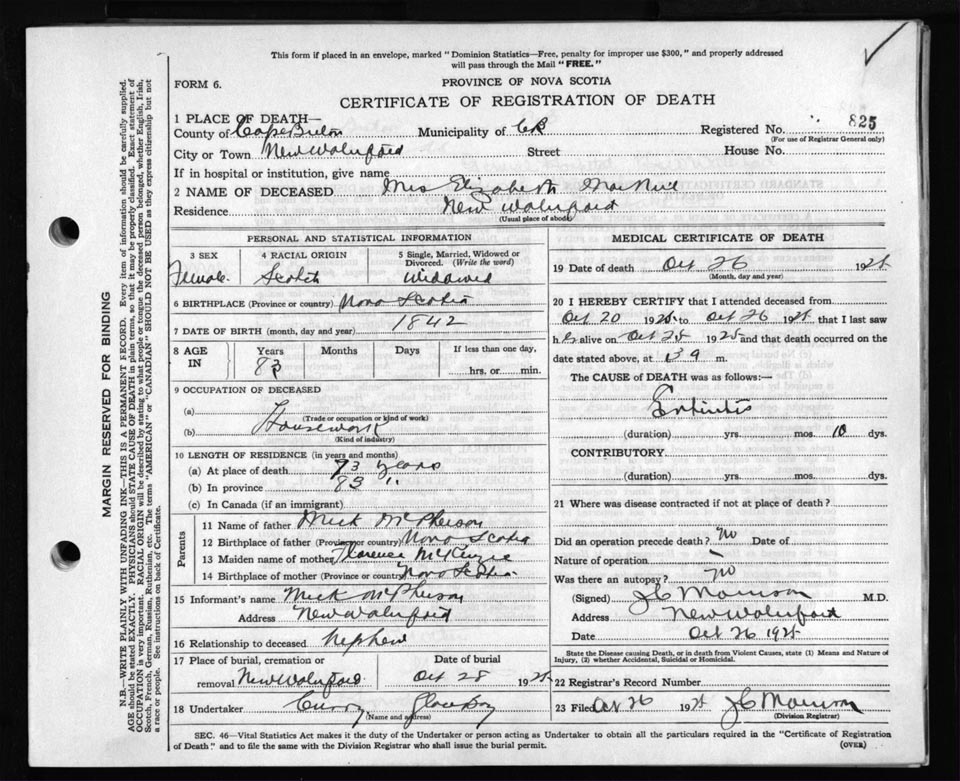 This form if placed in an envelope, marked "Dominion Statistics—Free, penalty for improper use $300," and properly addressed
will pass through the Mail "FREE."
FORM 6.
PROVINCE OF NOVA SCOTIA
CERTIFICATE OF REGISTRATION OF DEATH
1 PLACE OF DEATH—
County of Cape Breton Municipality of CB Registered No. 825
(For use of Registrar General only)
City or Town New Waterford Street House No.
If in hospital or institution, give name
2 NAME OF DECEASED Mrs Elizabeth MacNeil
Residence New Waterford
(Usual place of abode)
PERSONAL AND STATISTICAL INFORMATION
3 SEX 4 RACIAL ORIGIN 5 Single, Married, Widowed or Divorced. (Write the word)
Female Scotch Widowed
6 BIRTHPLACE (Province or country) Nova Scotia
7 DATE OF BIRTH (month, day and year) 1842
8 AGE IN Years Months Days If less than one day,
83 hrs. or min.
9 OCCUPATION OF DECEASED
(a)
(Trade or occupation or kind of work)
(b) Housework
(Kind of industry)
10 LENGTH OF RESIDENCE (in years and months)
(a) At place of death 73 years
(b) In province 83 "
(c) In Canada (if an immigrant)
Parents
11 Name of father Mick McPherson
12 Birthplace of father (Province or country) Nova Scotia
13 Maiden name of mother Florence McKenzie
14 Birthplace of mother (Province or country) Nova Scotia
15 Informant's name Mick McPherson
Address New Waterford
16 Relationship to deceased Nephew
17 Place of burial, cremation or Date of burial
removal New Waterford Oct 28 1925
18 Undertaker Curry Glace Bay
(Name and address)
MEDICAL CERTIFICATE OF DEATH
19 Date of death Oct 26 1925
(Month, day and year)
20 I HEREBY CERTIFY that I attended deceased from
Oct 20 1925 to Oct 26 1925 that I last saw
h alive on Oct 25 1925 and that death occurred on the
date stated above, at m.
The CAUSE of DEATH was as follows:—
Enteritis
(duration) yrs. mos. 10 dys.
CONTRIBUTORY
(duration) yrs. mos. dys.
21 Where was disease contracted if not at place of death?
Did an operation precede death? No Date of
Nature of operation
Was there an autopsy? No
(Signed) J C Morrison M.D.
Address New Waterford
Date Oct 26 1925
State the Disease causing Death, or in death from Violent Causes, state (1) Means and Nature of
Injury, (2) whether Accidental, Suicidal or Homicidal.
22 Registrar's Record Number
23 Filed Oct 26 1925 J C Morrison
(Division Registrar)
SEC. 46—Vital Statistics Act makes it the duty of the Undertaker or person acting as Undertaker to obtain all the particulars required in the "Certificate of Registration
of Death" and to file the same with the Division Registrar who shall issue the burial permit. (OVER)
MARGIN RESERVED FOR BINDING
N.B.—WRITE PLAINLY WITH UNFADING INK—THIS IS A PERMANENT RECORD. Every item of information should be carefully supplied.
AGE should be stated EXACTLY. PHYSICIANS should STATE CAUSE OF DEATH in plain terms, so that it may be properly classified. Exact statement of
OCCUPATION is very important. RACIAL ORIGIN will be described by stating to what people or tongue the deceased person belonged, whether English, Irish,
Scotch, French, German, Russian, Ruthenian, etc. The terms "AMERICAN" or "CANADIAN" SHOULD NOT BE USED as they express citizenship but not
a race or people. See instructions on back of Certificate.